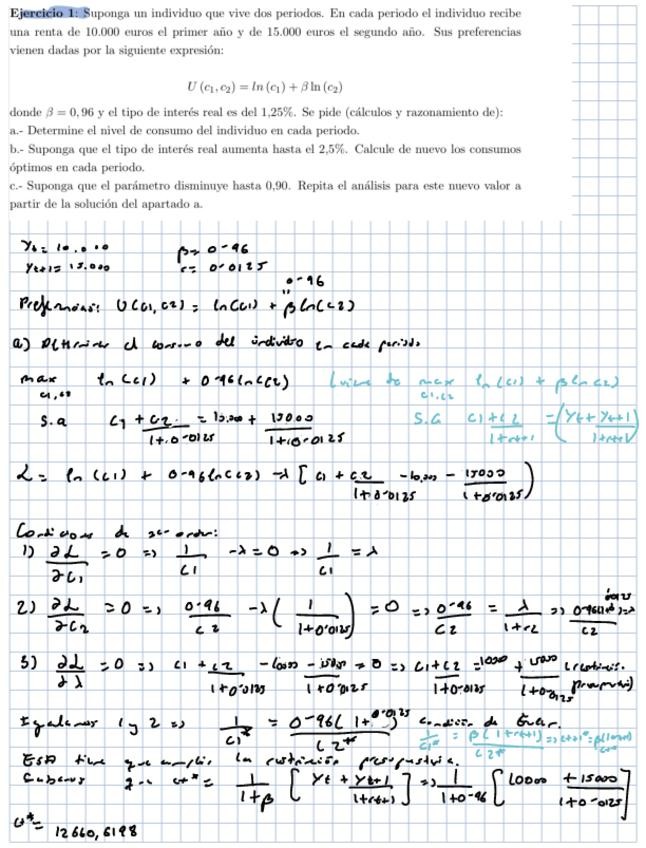 Ejercicio 1: Suponga un individuo que vive dos periodos. En cada periodo el individuo recibe
una renta de 10.000 euros el primer año y de 15.000 euros el segundo año. Sus preferencias
vienen dadas por la siguiente expresión:
U (c₁, c₂) = ln (c₁) + β ln (c₂)
donde β = 0,96 y el tipo de interés real es del 1,25%. Se pide (cálculos y razonamiento de):
a.- Determine el nivel de consumo del individuo en cada periodo.
b.- Suponga que el tipo de interés real aumenta hasta el 2,5%. Calcule de nuevo los consumos
óptimos en cada periodo.
c.- Suponga que el parámetro disminuye hasta 0,90. Repita el análisis para este nuevo valor a
partir de la solución del apartado a.
Yt = 10.000 β = 0'96
Yt+1 = 15.000 r = 0'0125
0'96
Preferencias: U(C1, C2) = ln(C1) + β ln(C2)
a) Determinar el consumo del individuo en cada periodo
max ln(C1) + 0'96 ln(C2) (viene de max ln(C1) + β ln C2)
C1, C2 C1, C2
s.a C1 + C2/(1+0'0125) = 10.000 + 15000/(1+0'0125) S.a C1 + C2/(1+rt+1) = (Yt + Yt+1/(1+rt+1))
L = ln(C1) + 0'96 ln(C2) - λ [C1 + C2/(1+0'0125) - 10.000 - 15000/(1+0'0125)]
Condiciones de 1er orden:
1) ∂L/∂C1 = 0 => 1/C1 - λ = 0 => 1/C1 = λ
2) ∂L/∂C2 = 0 => 0'96/C2 - λ (1/(1+0'0125)) = 0 => 0'96/C2 = λ/(1+r2) => 0'96(1+0'0125)/C2 = λ
3) ∂L/∂λ = 0 => C1 + C2/(1+0'0125) - 10000 - 15000/(1+0'0125) = 0 => C1 + C2/(1+0'0125) = 10000 + 15000/(1+0'0125) (restricc. presupuest.)
Igualamos 1 y 2 => 1/C1* = 0'96(1+0'0125)/C2* condición de Euler. 1/C1* = β(1+rt+1)/C2*
Esta tiene que cumplir la restricción presupuestaria.
Sabemos que Ct* = 1/(1+β) [Yt + Yt+1/(1+rt+1)] => 1/(1+0'96) [10000 + 15000/(1+0'0125)]
Ct* = 12660,6198